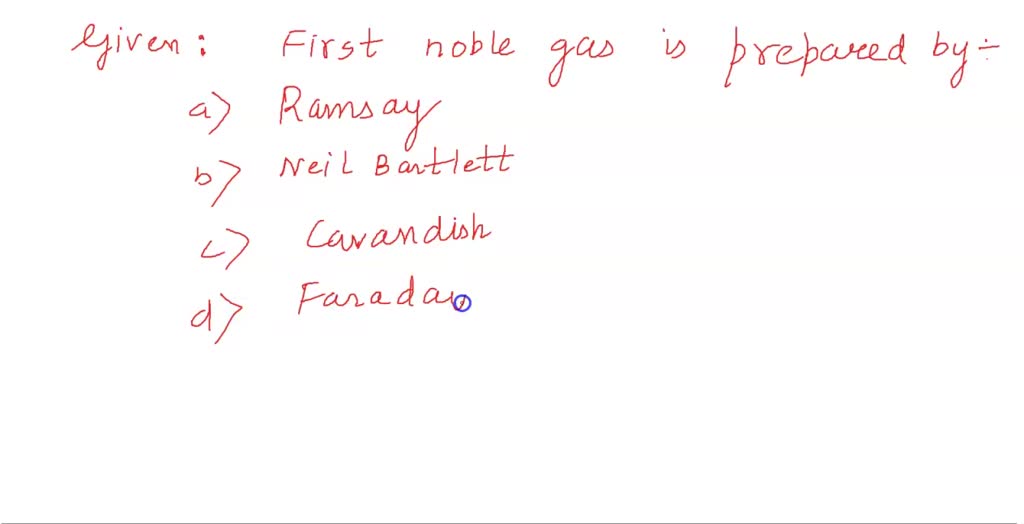 Given: First noble gas is prepared by ÷
a) Ramsay
b) Neil Bartlett
c) Cavandish
d) Faraday